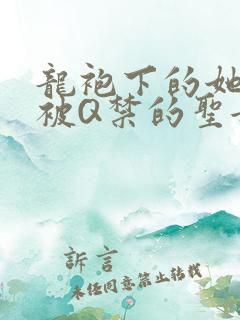 龍袍下的她
被Q禁的聖
訴言
未任同意禁止转载